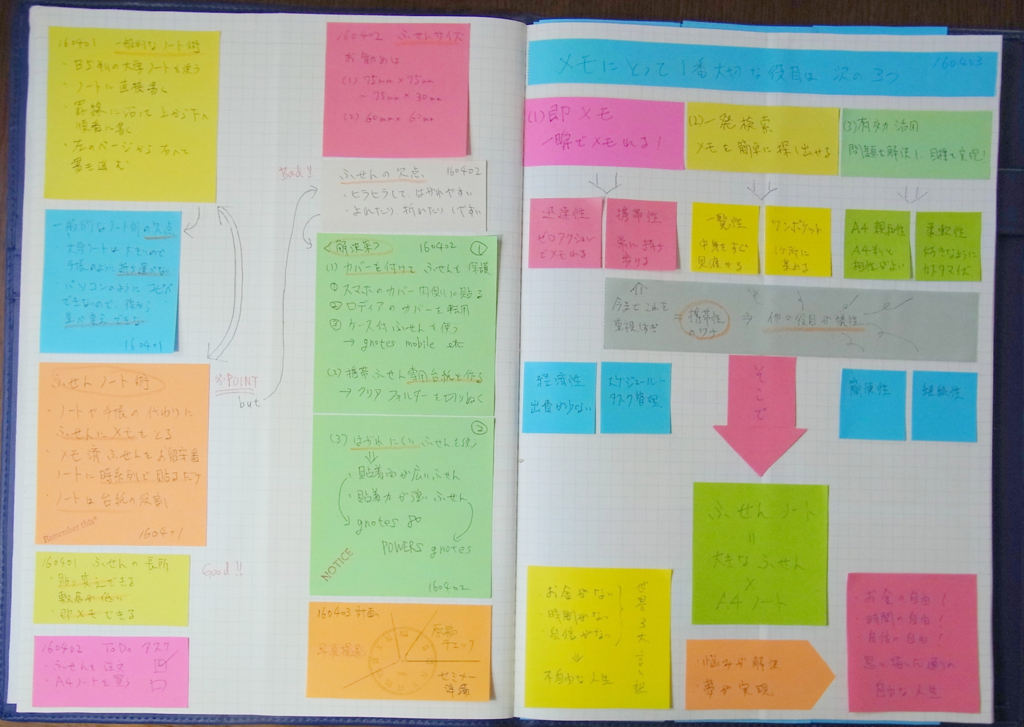 160401 一般的なノート術
・B5判の大学ノートを使う
・ノートに直接書く
・罫線に沿って上から下に
順番に書く
・左のページから右へと
書き進む
一般的なノート術の欠点
・大学ノートは大きいので
手帳のように持ち運べない
・パソコンのようにコピペ
できないので、後から
並べ替えできない
160401
ふせんノート術
・ノートや手帳の代わりに
ふせんにメモをとる
・メモ済ふせんをA4
ノートに時系列で貼るだけ
・ノートは台紙の役割
Remember this
160401
160401 ふせんの長所
・貼り変えできる
・即メモできる
Good!!
160402 ToDo タスク
・ふせんを注文
・A4ノートを買う
※POINT
but
160402 ふせんサイズ
お勧めは
(1) 75mm×75mm
~75mm×30mm
Bad!!
ふせんの欠点 160402
・ヒラヒラして、はがれやすい
・よれたり折れたりしやすい
<解決策> 160402 ①
(1) カバーを付けてふせんを保護
① スマホのカバー内側に貼る
② ロディアのカバーを転用
③ ケース付ふせんを使う
→ gnotes mobile etc
(2) 携帯ふせん専用台紙を作る
→ クリアフォルダーを切りぬく
②
(3) はがれにくいふせんを使う
・粘着面が広いふせん
・粘着力が強いふせん
gnotes
POWERS gnotes
NOTICE
160402
160403 計画
チェック
セミナー
準備
メモにとって1番大切な役目は次の3つ
160403
(1) 即メモ
一瞬でメモれる!
(2) 一発検索
メモを簡単に探し出せる
(3) 有効活用
問題を解決し、目標を実現!
迅速性
ゼロアクション
でメモれる
携帯性
常に持ち
歩ける
一覧性
中身をすぐ
見渡せる
ワンポケット
1ヶ所に
A4親和性
A4判と
相性がよい
柔軟性
好きなように
カスタマイズ
今までこれを
重視しすぎ
=携帯性
のワナ
⇒ 他の役目が犠牲
経済性
出費が少ない
スケジュール
タスク管理
そこで
簡便性
継続性
ふせんノート
=
大きなふせん
×
A4ノート
・お金がない
・時間がない
・自信がない
世界3大言い訳
↓
不自由な人生
悩みが解決
夢が実現
・お金の自由!
・時間の自由!
・自信の自由!
思い描いた通りの
自由な人生